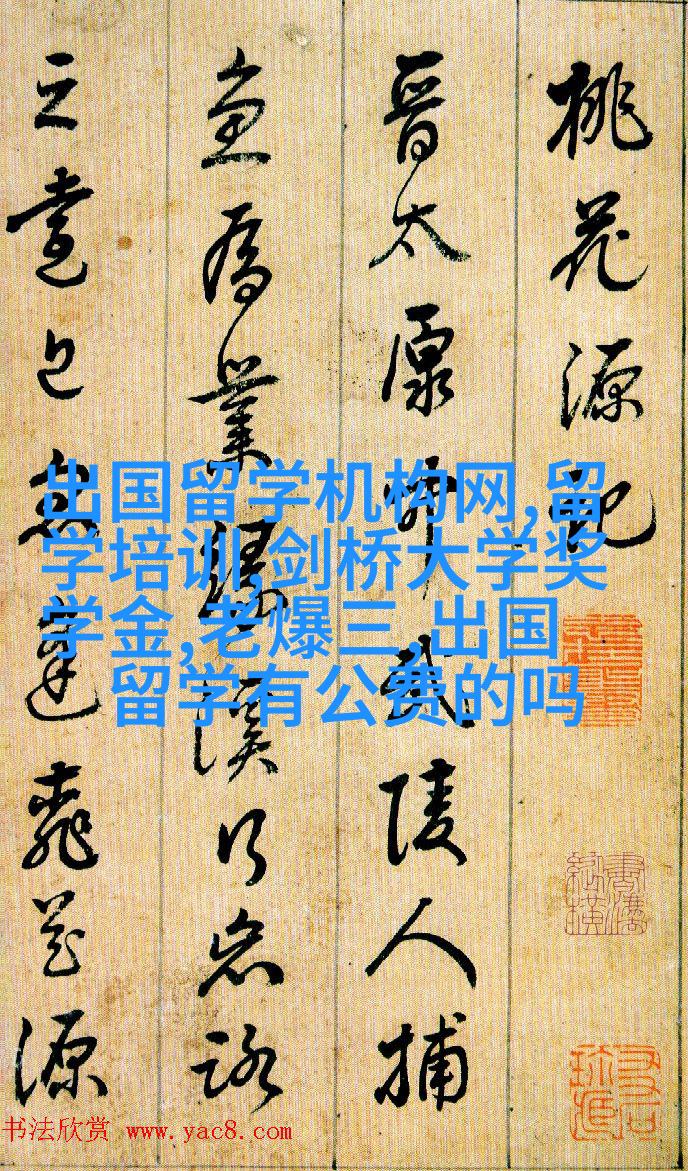 桃花源記
晉太原中武陵人捕
魚為業緣溪行忘路
之遠近忽逢桃花源
出国留学机构网,留
学培训,剑桥大学奖
学金,老爆三,出国
留学有公费的吗
书法欣赏 www.yac8.com